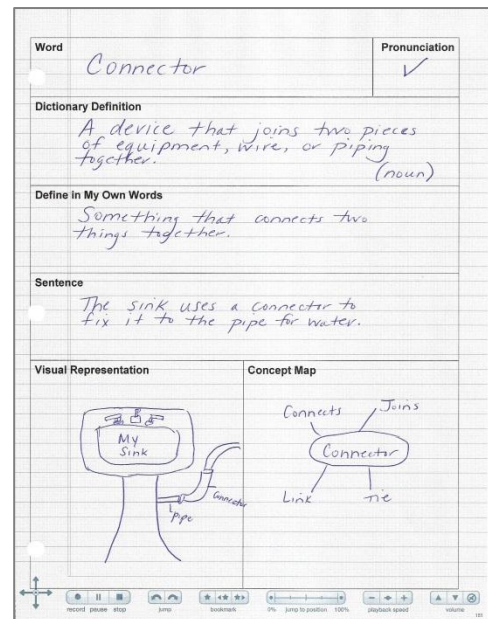 Word
Pronunciation
Connector
✓
Dictionary Definition
A device that joins two pieces
of equipment, wire, or piping
together.
(noun)
Define in My Own Words
Something that connects two
things together.
Sentence
The sink uses a connector to
fix it to the pipe for water.
Visual Representation
My
Sink
Connector
Pipe
Concept Map
Connects
Joins
Connector
Link
Tie
record pause stop
jump
bookmark
0% jump to position 100%
playback speed
volume